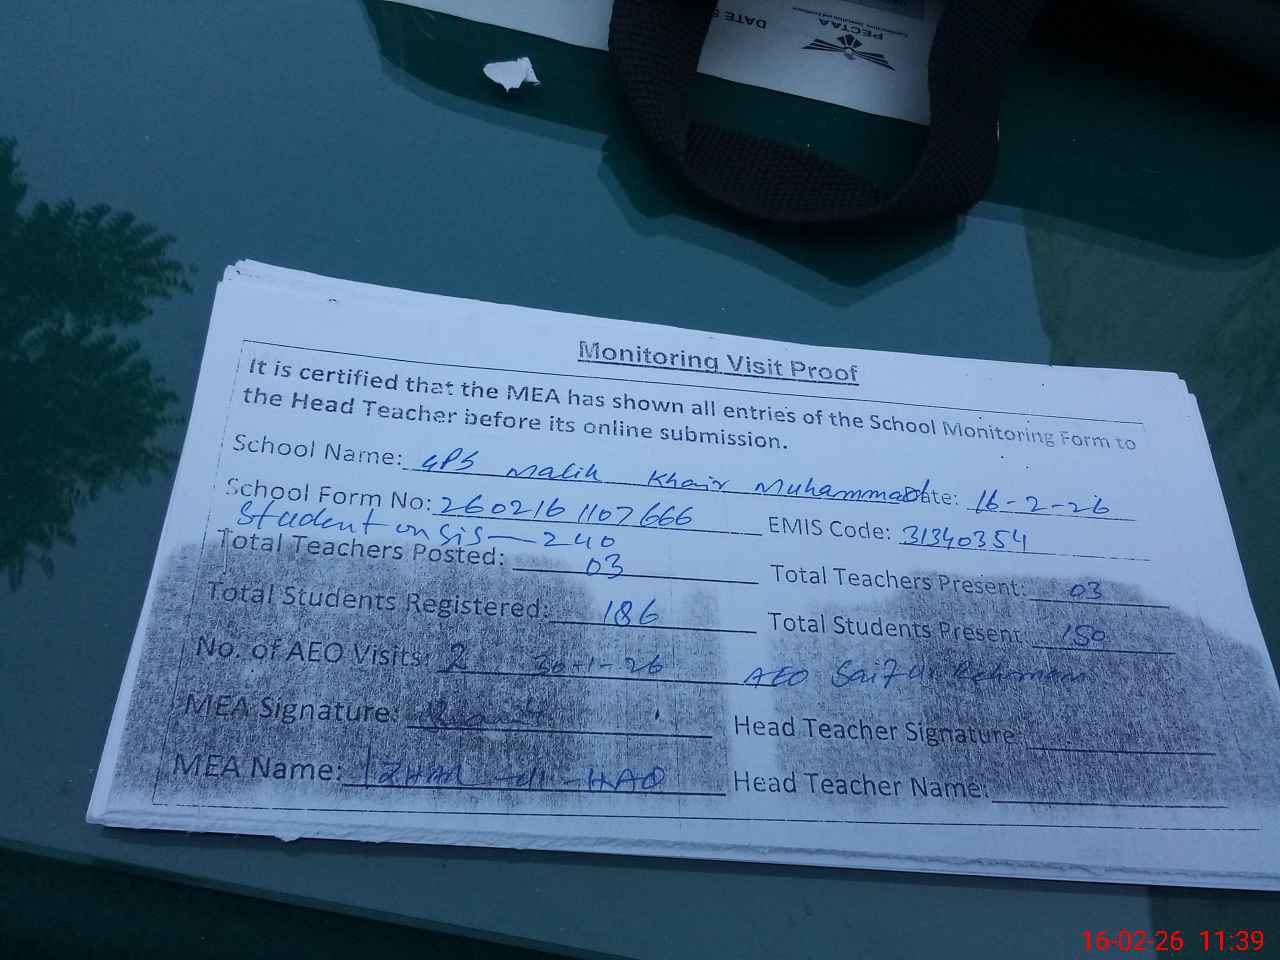 PECTAA
DATE S
Monitoring Visit Proof
It is certified that the MEA has shown all entries of the School Monitoring Form to
the Head Teacher before its online submission.
School Name: GPS Malik Khair Muhammad Date: 16-2-26
School Form No: 260216 1107666 EMIS Code: 31340354
Student on SiS — 240
Total Teachers Posted: 03 Total Teachers Present: 03
Total Students Registered: 186 Total Students Present: 150
No. of AEO Visits: 2 30-1-26 AEO Saif ur Rehman
MEA Signature: Head Teacher Signature:
MEA Name: IZHAR-ul-HAQ Head Teacher Name:
16-02-26 11:39